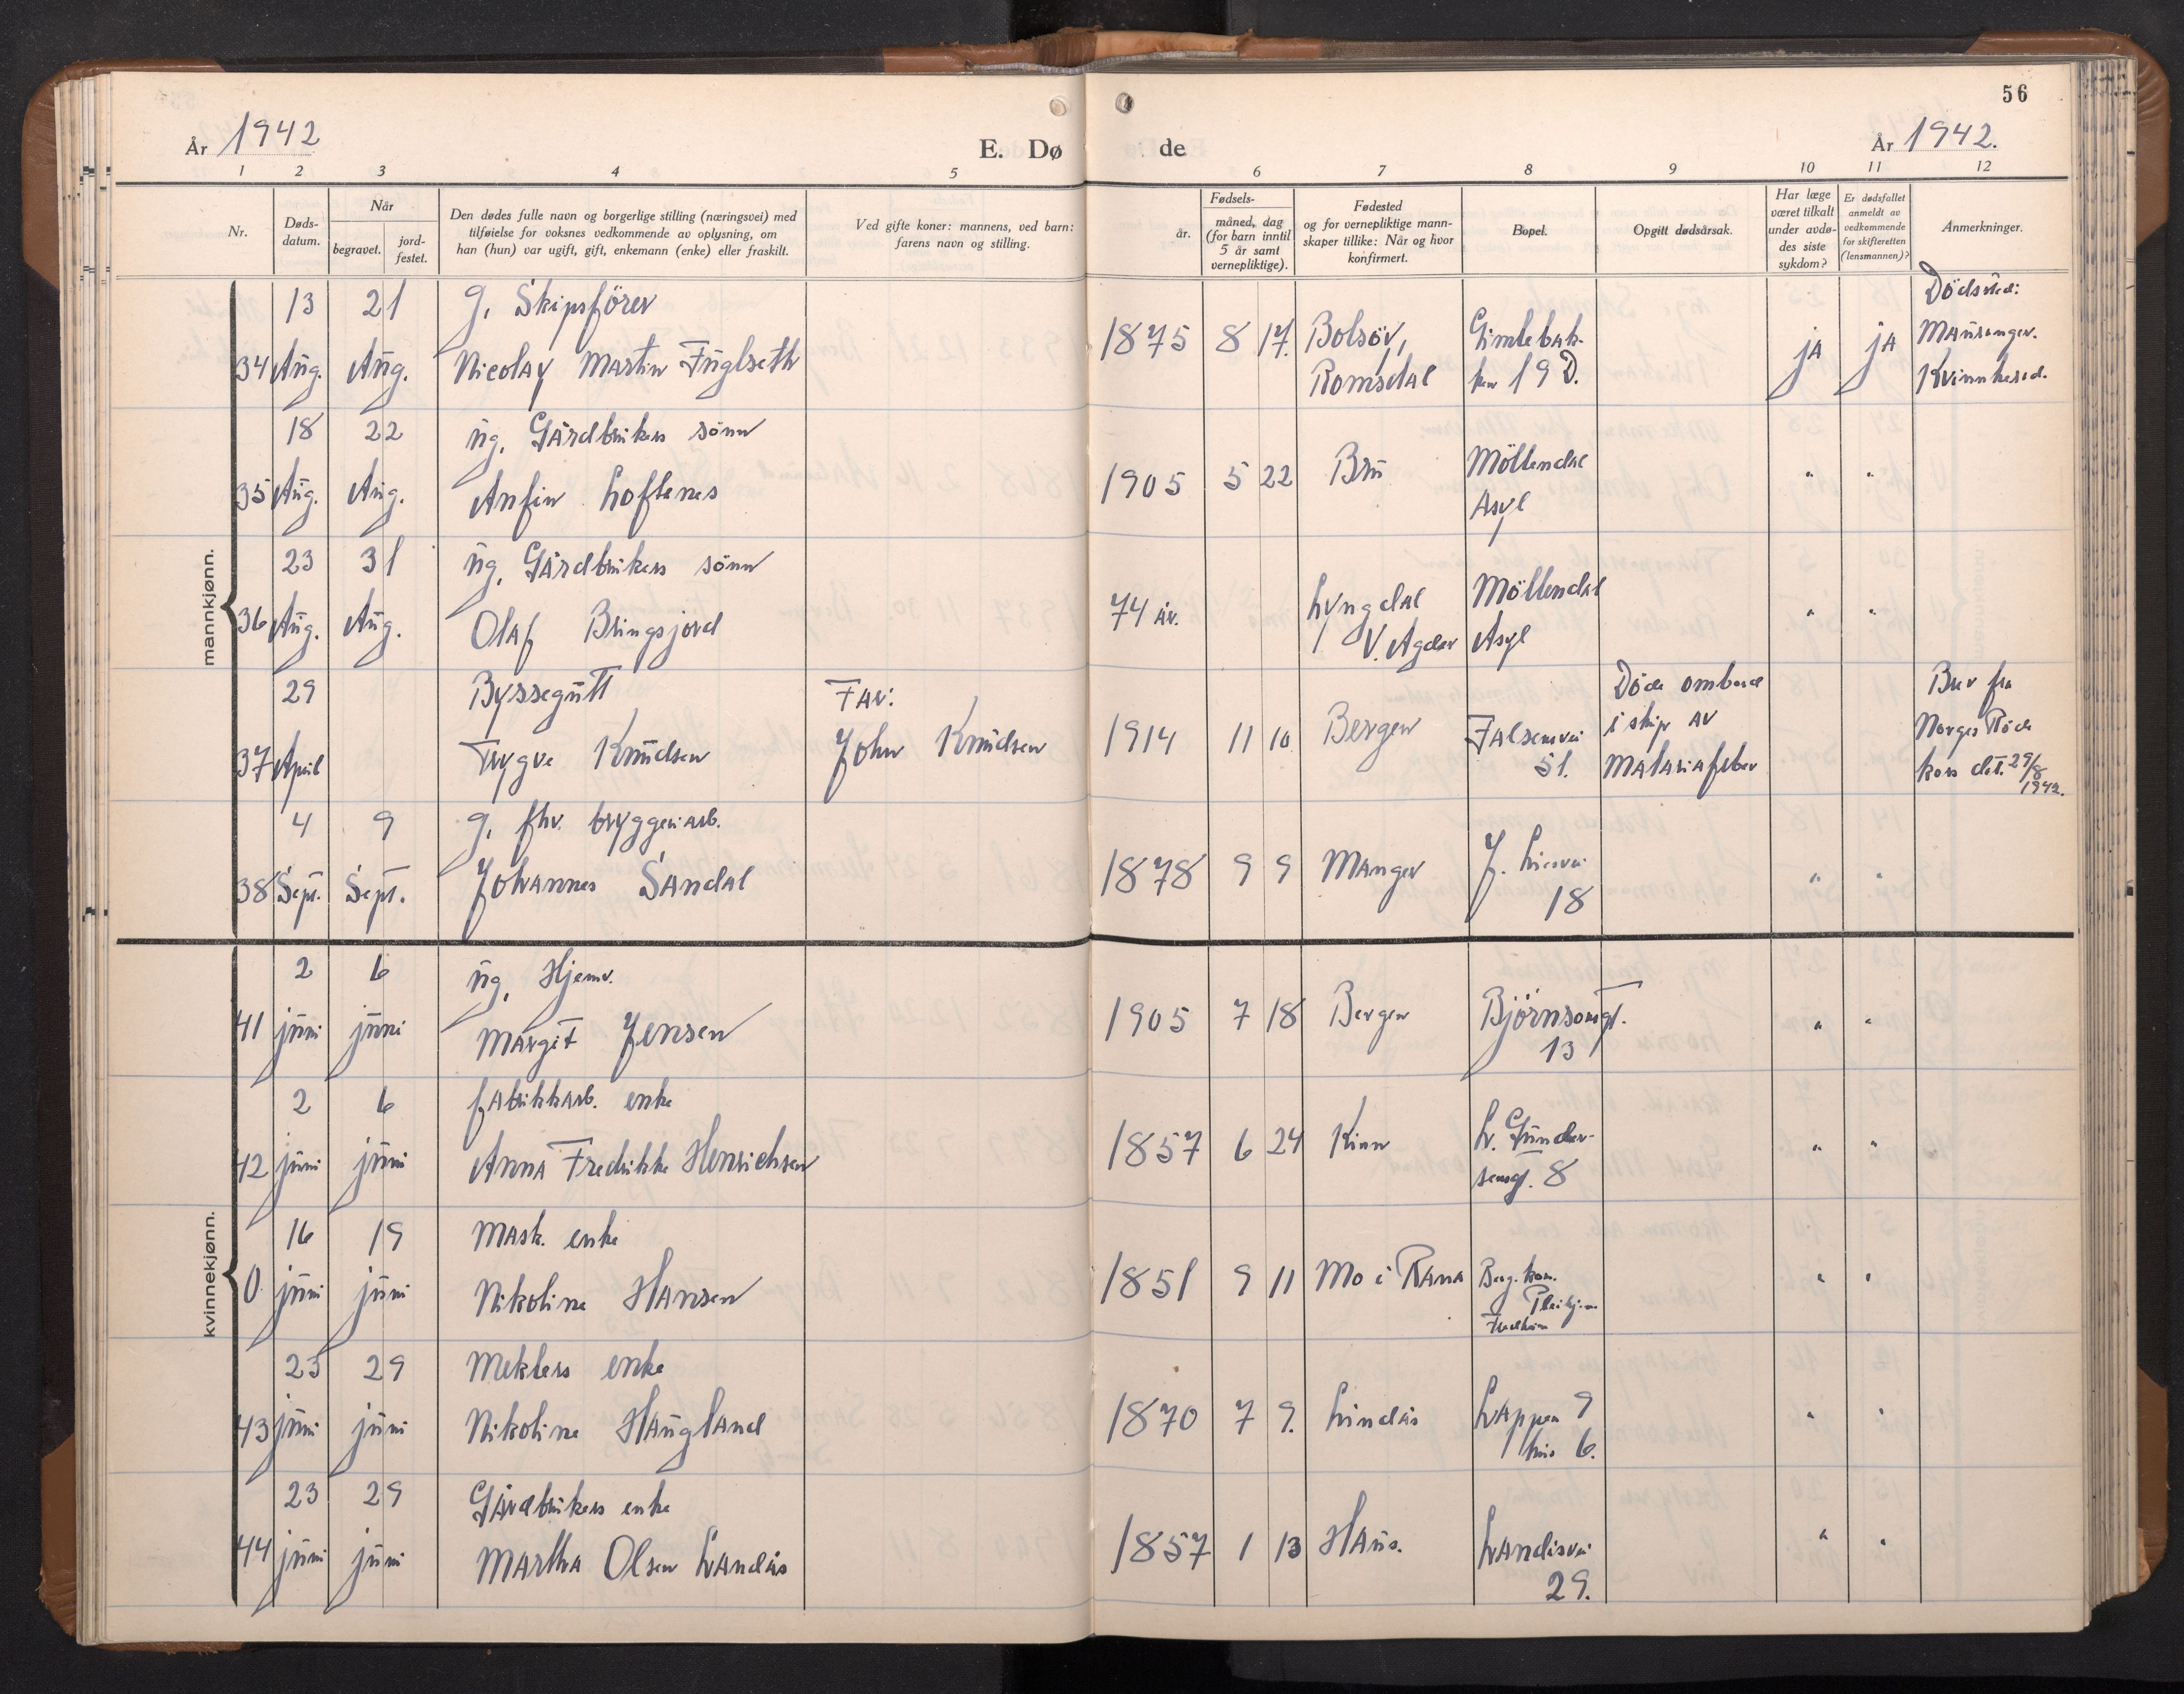 56
År 1942 E. Dø de År 1942.
1 2 3 4 5 6 7 8 9 10 11 12
Nr. Døds-datum. Når begravet. jord-festet. Den dødes fulle navn og borgerlige stilling (næringsvei) med tilføielse for voksnes vedkommende av oplysning, om han (hun) var ugift, gift, enkemann (enke) eller fraskilt. Ved gifte koner: mannens, ved barn: farens navn og stilling. Fødsels- år. måned, dag (for barn inntil 5 år samt vernepliktige). Fødested og for vernepliktige mann-skaper tillike: Når og hvor konfirmert. Bopel. Opgitt dødsårsak. Har læge været tilkalt under avdø-des siste sykdom? Er dødsfallet anmeldt av vedkommende for skifteretten (lensmannen)? Anmerkninger.
mannkjønn.
13 21 g. Skipsförer Dödsted:
34 Aug. Aug. Nicolay Martin Fuglseth 1875 8 17. Bolsöy, Gimlebak- ja ja Mauranger.
Romsdal ken 19 D. Kvinnherad.
18 22 ug. Gårdbrukers sönn
35 Aug. Aug. Anfin Loftenes 1905 5 22 Bru Möllendal " "
Asyl
23 31 ug. Gårdbrukers sönn
36 Aug. Aug. Olaf Bringsjord 74 år. Lyngdal Möllendal " "
V. Agder Asyl
29 Byssegutt Far: Döde ombord Brev fra
37 April Trygve Knudsen John Knudsen 1914 11 10 Bergen 51. i skip av Norges Röde
Malariafeber kors dat. 29/8 1942.
4 9 g. fhv. bryggeriarb.
38 Sept. Sept. Johannes Sandal 1878 9 9 Manger J. Liesvei " "
18
kvinnekjønn.
2 6 ug. Hjemv.
41 juni juni Margit Jensen 1905 7 18 Bergen Björnsonsgt. " "
13
2 6 fabrikkarb. enke
42 juni juni Anna Fredrikke Henrichsen 1857 6 24 Kinn L. Gunder- " "
sensgt. 8
16 19 Mask. enke
0 juni juni Nikoline Hansen 1851 9 11 Mo i Rana Berg. kom. " "
Pleiehjem
23 29 Meklers enke
43 juni juni Nikoline Haugland 1870 7 9. Lindås Lappen 9 " "
hus 6.
23 29 Gårdbrukers enke
44 juni juni Martha Olsen Landås 1857 1 13 Haus. Landåsvei " "
29.